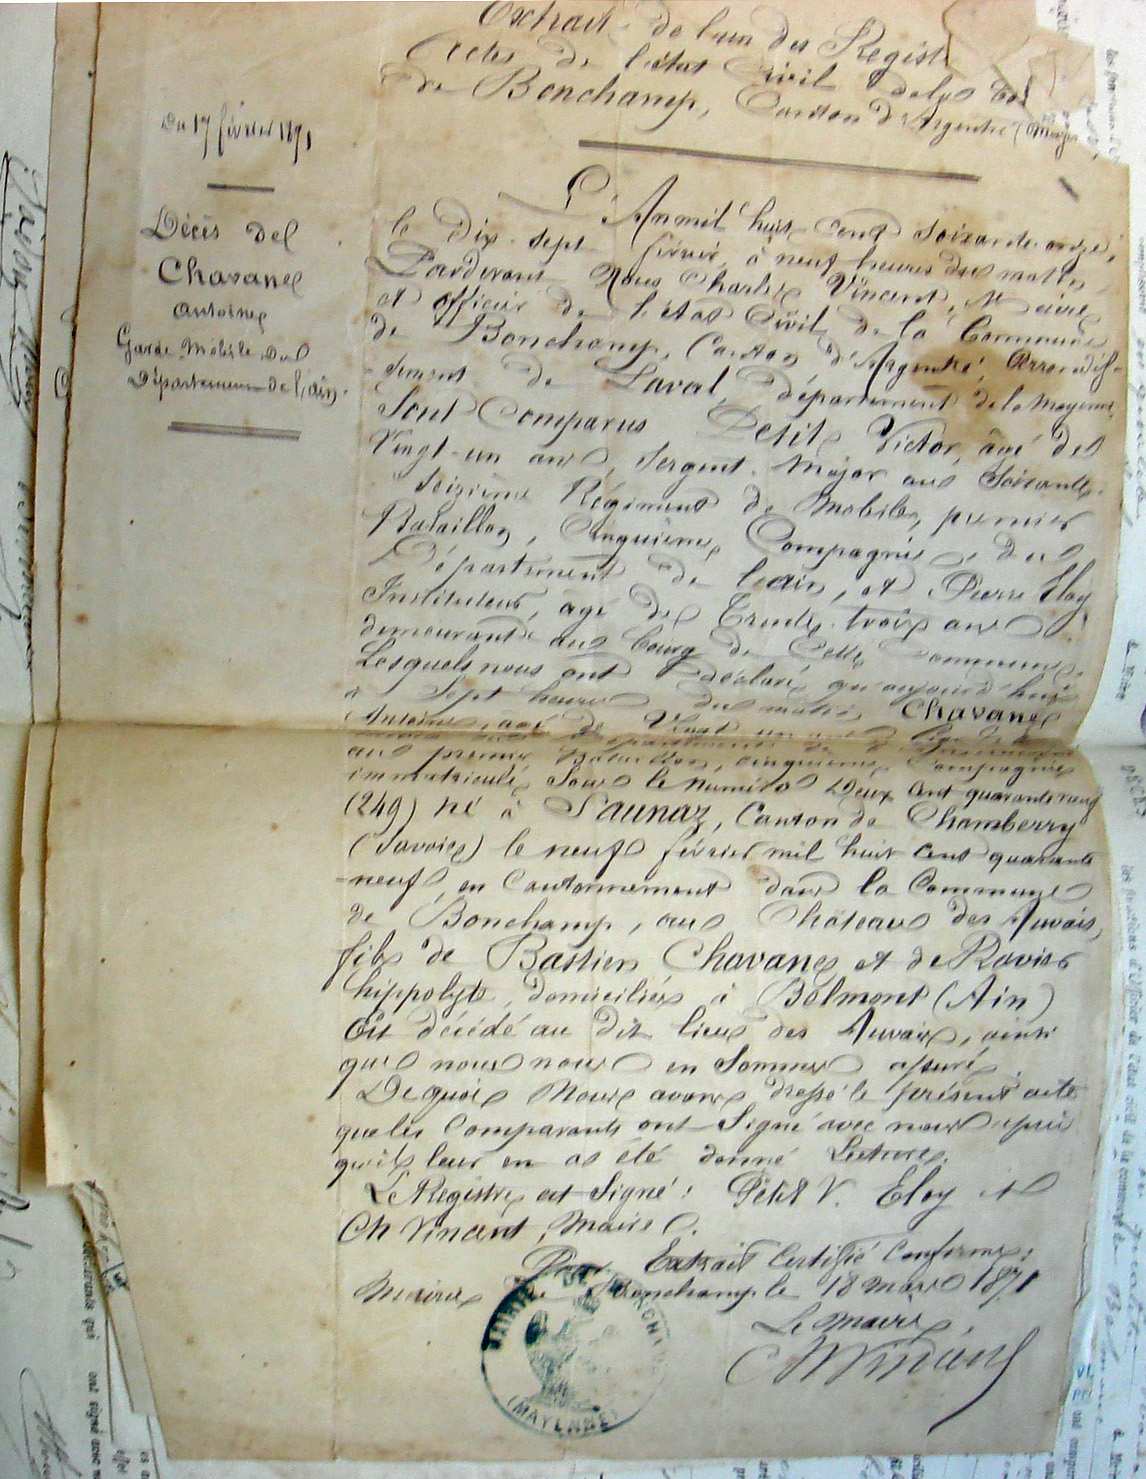 Extrait de l'un des Regist
Actes de l'état Civil de la
de Bonchamp, Canton d'Argentré (May
Du 17 février 1871
Décès de
Chavane
Antoine
Garde Mobile du
Département de l'ain.
L'An mil huit cent soixante onze,
le dix-sept février, à neuf heures du matin,
Pardevant Nous Charles Vincent, Maire
et officier de l'état Civil de la Commune
de Bonchamp, Canton d'Argentré, Arrondis-
-sement de Laval, département de la Mayenne,
Sont Comparus Petit Victor, âgé de
Vingt-un ans, Sergent-Major au Soixante-
seizième Régiment de Mobiles, premier
Bataillon, Cinquième Compagnie, du
Département de l'ain, et Pierre Eloy
Instituteur, âgé de Trente-trois ans
demeurant au bourg de Cette Commune.
Lesquels nous ont déclaré qu'aujourd'hui
à Sept heures du matin, Chavane
Antoine, âgé de Vingt un ans
au premier Bataillon, cinquième Compagnie
immatriculé Sous le numéro Deux cent quarante neuf
(249) né à Saunaz, Canton de Chamberry
(Savoie) le neuf février mil huit cent quarante
-neuf, en Cantonnement dans la Commune
de Bonchamp, au Château des Auvais,
fils de Bastien Chavane et de Ravier
hippolyte, domiciliés à Belmont (Ain)
Est décédé au dit lieu des Auvais, ainsi
que nous nous en Sommes assuré.
De quoi Nous avons dressé le présent acte
que les Comparants ont Signé avec nous après
qu'il leur en a été donné Lecture.
Le Registre est Signé: Petit V. Eloy et
Ch Vincent, Maire.
Pour Extrait Certifié Conforme:
Mairie de Bonchamp le 18 Mars 1871
Le Maire,
Ch Vincent
MAIRIE DE BONCHAMP
(MAYENNE)